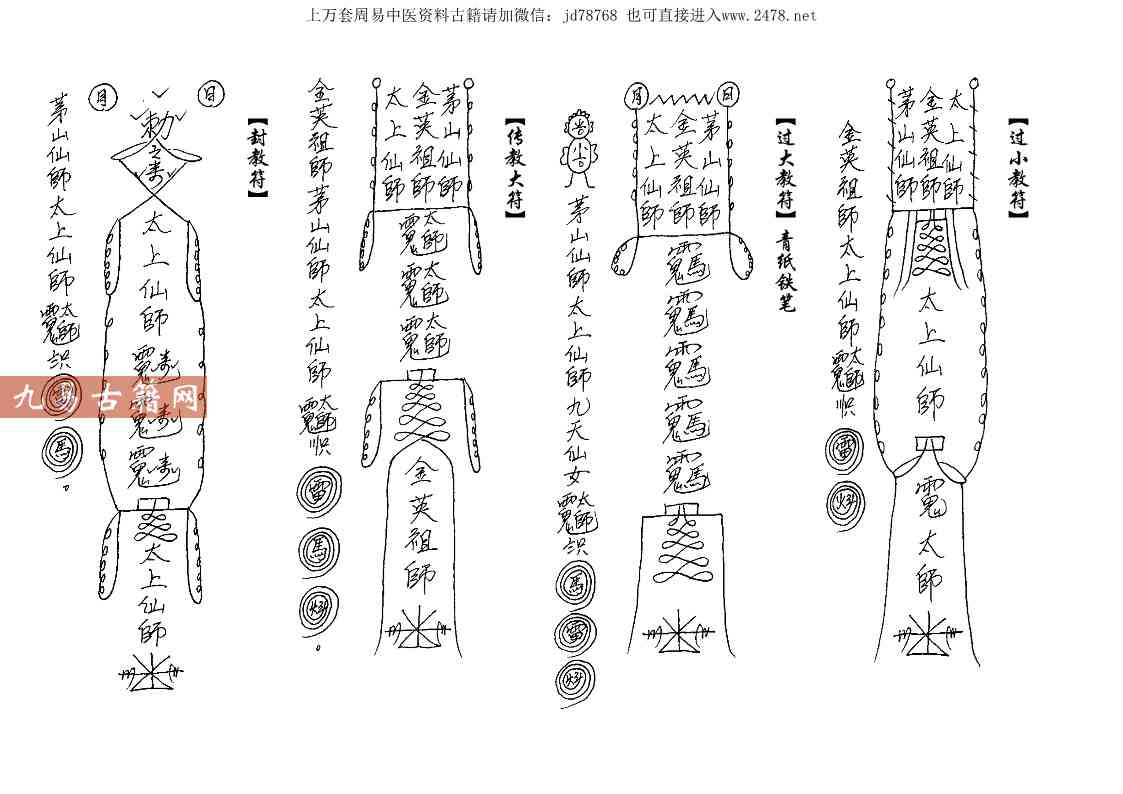 上万套周易中医资料古籍请加微信：jd78768 也可直接进入www.2478.net
【过小教符】
太上仙師
金英祖師
茅山仙師
太上仙師
太師
金英祖師太上仙師
太師
雷
【过大教符】青纸铁笔
日
月
茅山仙師
金英祖師
太上仙師
茅山仙師太上仙師九天仙女
太師
馬
雷
【传教大符】
茅山仙師
金英祖師
太上仙師
太師
太師
太師
金英祖師
金英祖師茅山仙師太上仙師
太師
雷
馬
【封教符】
日
月
勅
太上仙師
太上仙師
茅山仙師太上仙師
太師
雷
馬
九易古籍网